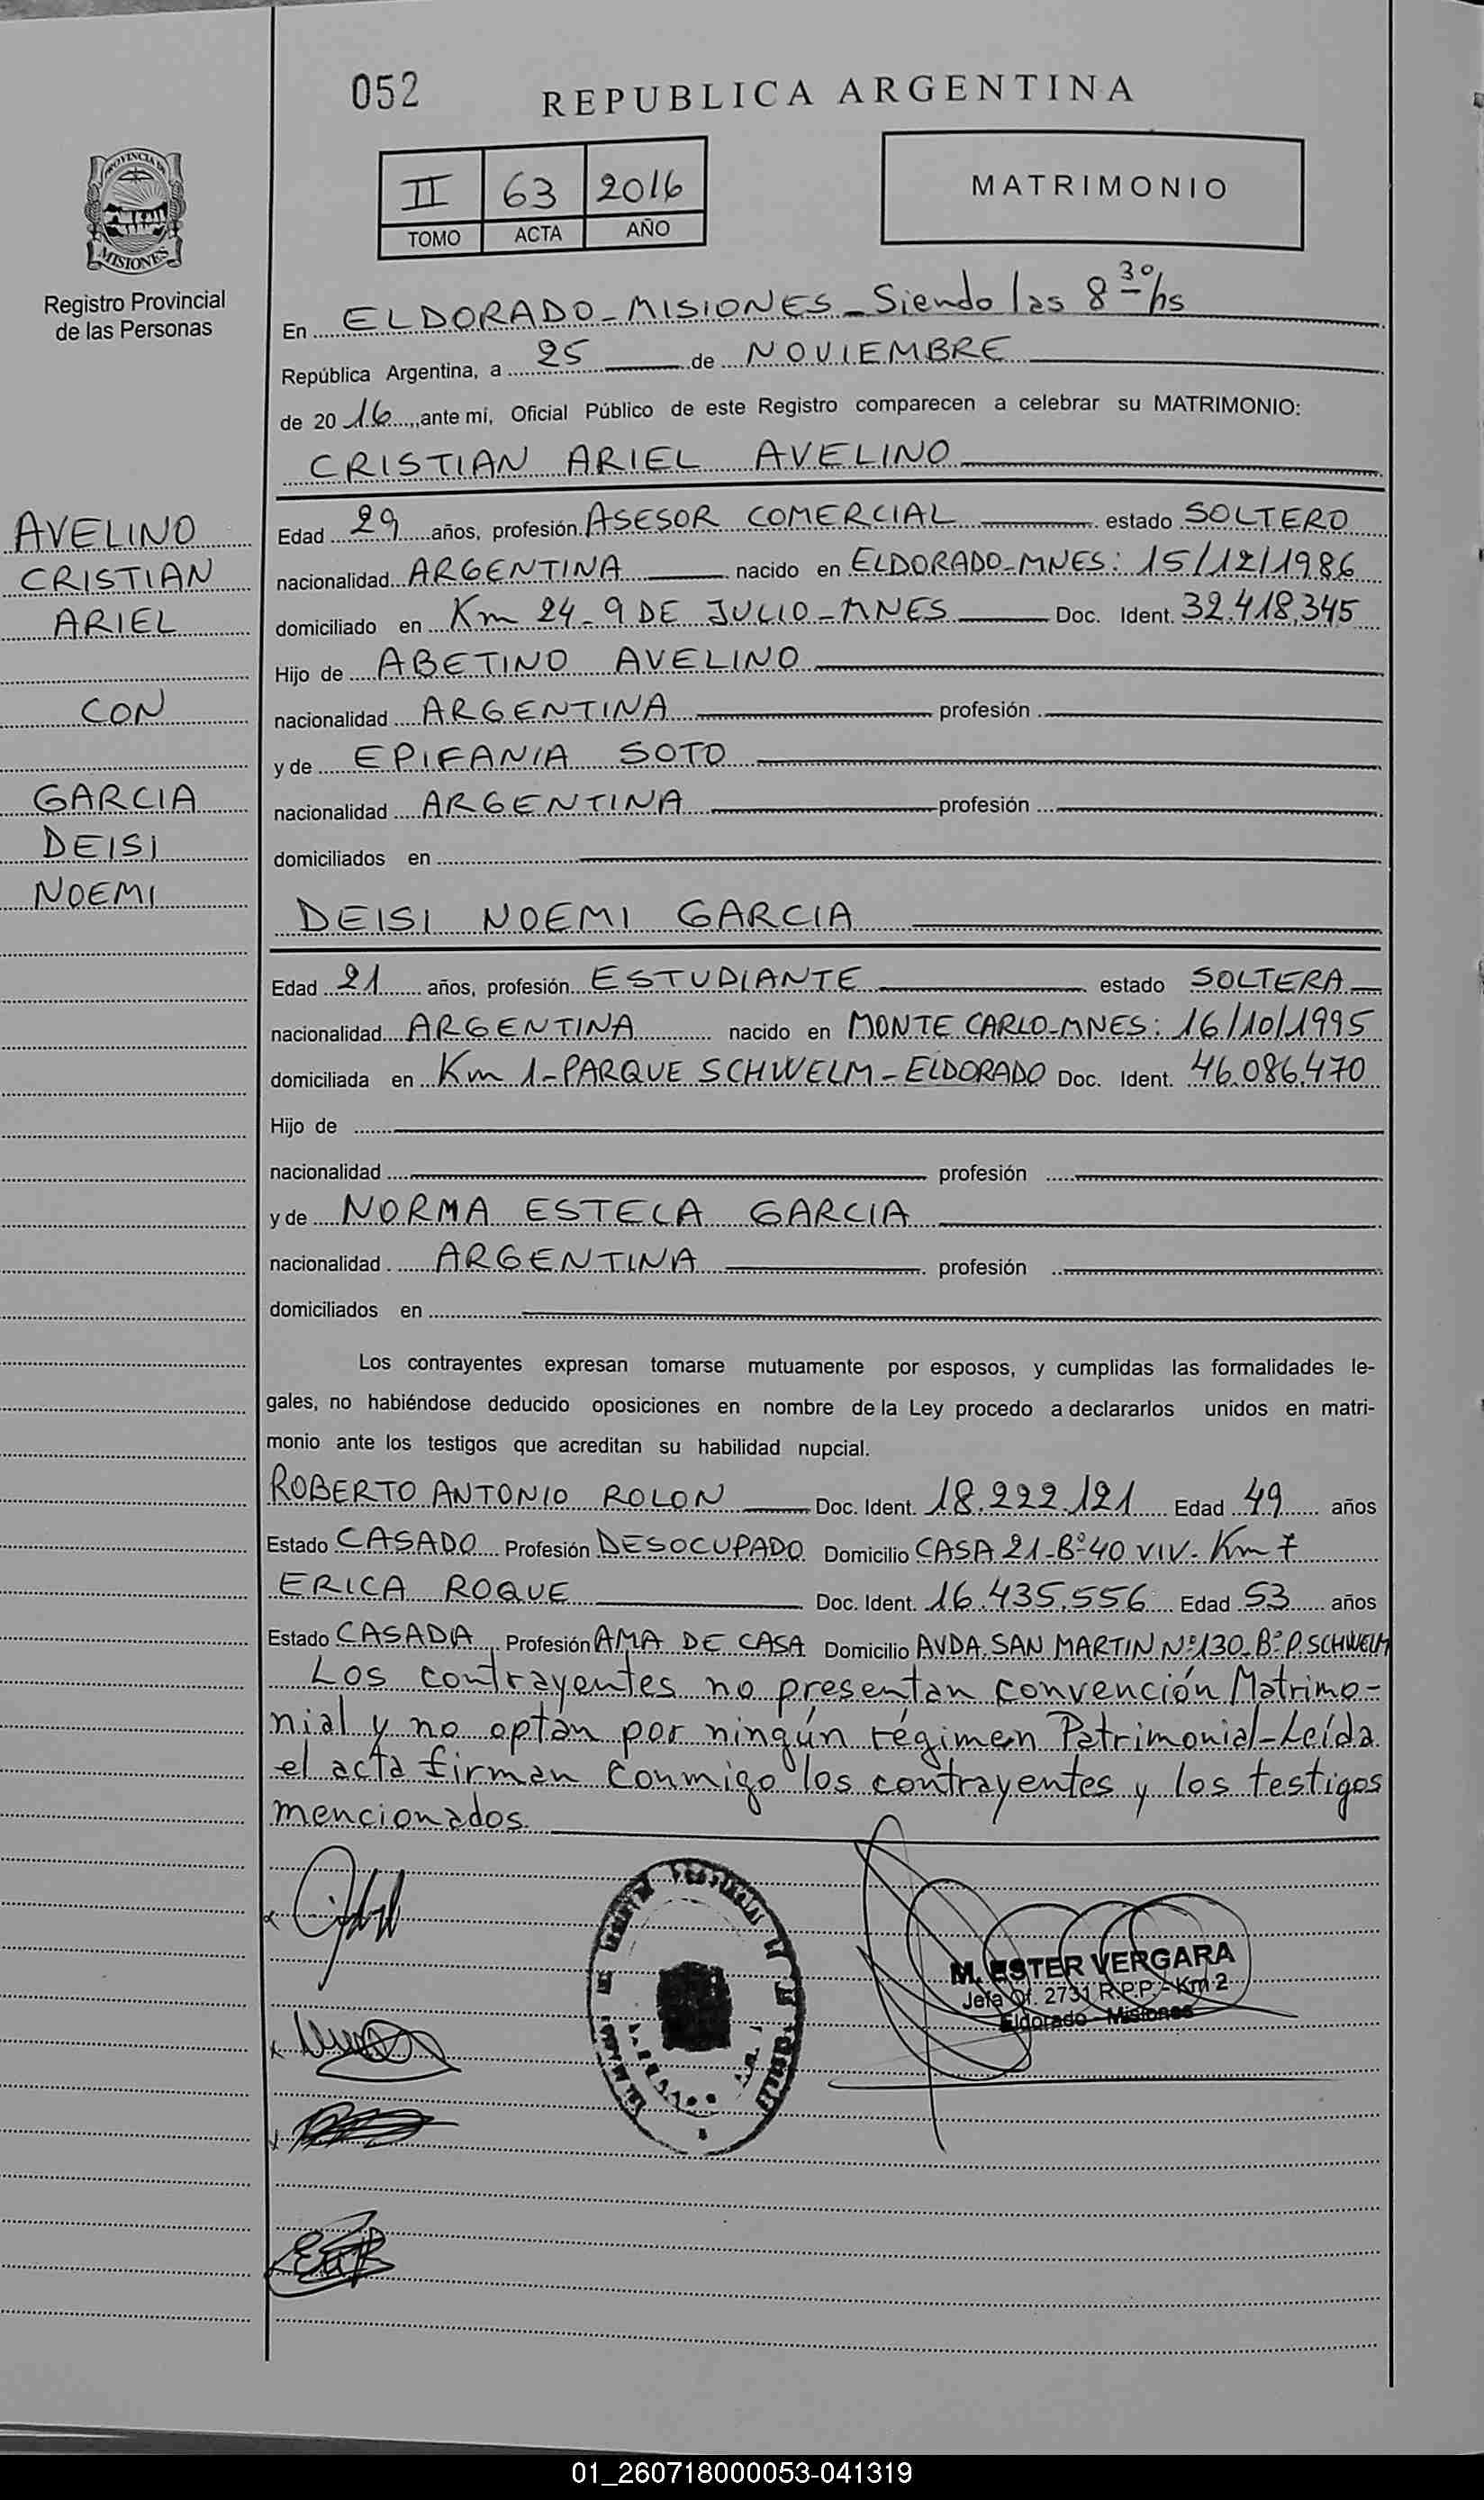 052
REPUBLICA ARGENTINA
II 63 2016
TOMO ACTA AÑO
MATRIMONIO
PROVINCIA DE
MISIONES
Registro Provincial
de las Personas
En ELDORADO-MISIONES-Siendo las 8 30/hs
República Argentina, a 25 de NOVIEMBRE
de 20 16, ante mí, Oficial Público de este Registro comparecen a celebrar su MATRIMONIO:
CRISTIAN ARIEL AVELINO
AVELINO
CRISTIAN
ARIEL
CON
GARCIA
DEISI
NOEMI
Edad 29 años, profesión ASESOR COMERCIAL estado SOLTERO
nacionalidad ARGENTINA nacido en ELDORADO-MNES: 15/12/1986
domiciliado en Km 24-9 DE JULIO-MNES Doc. Ident. 32.418.345
Hijo de ABETINO AVELINO
nacionalidad ARGENTINA profesión
y de EPIFANIA SOTO
nacionalidad ARGENTINA profesión
domiciliados en
DEISI NOEMI GARCIA
Edad 21 años, profesión ESTUDIANTE estado SOLTERA
nacionalidad ARGENTINA nacido en MONTE CARLO-MNES: 16/10/1995
domiciliada en Km 1-PARQUE SCHWELM-ELDORADO Doc. Ident. 46.086.470
Hijo de
nacionalidad profesión
y de NORMA ESTELA GARCIA
nacionalidad ARGENTINA profesión
domiciliados en
Los contrayentes expresan tomarse mutuamente por esposos, y cumplidas las formalidades le-
gales, no habiéndose deducido oposiciones en nombre de la Ley procedo a declararlos unidos en matri-
monio ante los testigos que acreditan su habilidad nupcial.
ROBERTO ANTONIO ROLON Doc. Ident. 18.222.121 Edad 49 años
Estado CASADO Profesión DESOCUPADO Domicilio CASA 21-Bº40 VIV- Km 7
ERICA ROQUE Doc. Ident. 16.435.556 Edad 53 años
Estado CASADA Profesión AMA DE CASA Domicilio AVDA. SAN MARTIN Nº130-Bº P. SCHWELM
Los contrayentes no presentan convención Matrimo-
nial y no optan por ningún régimen Patrimonial-Leída
el acta firman conmigo los contrayentes y los testigos
mencionados
M. ESTER VERGARA
Jefa Of. 2731 R.P.P. - Km 2
Eldorado - Misiones
01_260718000053-041319